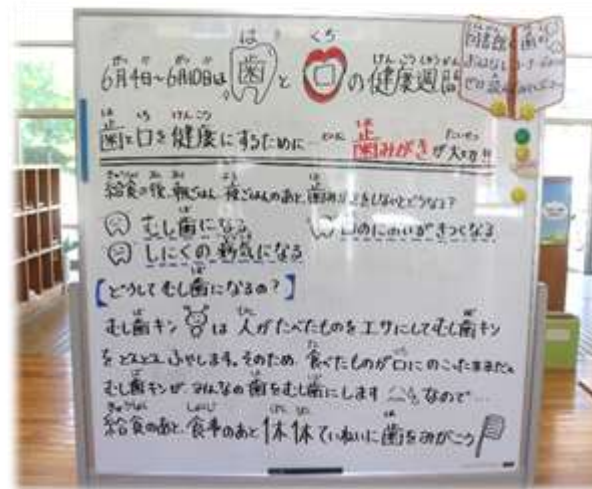 6月4日～6月10日は 歯 と 口 の健康週間
歯と口を健康にするために… 歯みがきが大切!!
給食の後、朝ごはん、夜ごはんのあと、歯みがきをしないとどうなる？
むし歯になる 口のにおいがきつくなる
しにくの病気になる
【どうしてむし歯になるの？】
むし歯キンは人がたべたものをエサにしてむし歯キン
をどんどんふやします。そのため、食べたものが口にのこったままだと
むし歯キンが、みんなの歯をむし歯にします なので…
給食のあと、食事のあと 1本1本ていねいに歯をみがこう